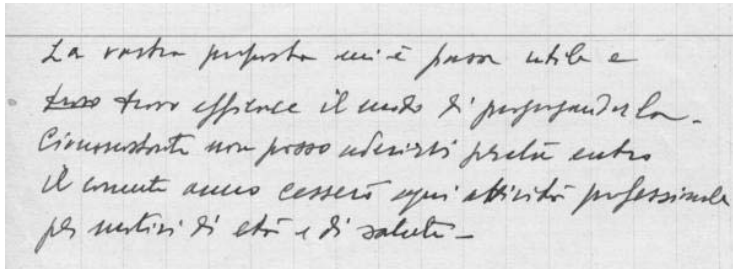 La vostra proposta mi è parsa utile e
trovo trovo efficace il modo di propagandarla.
Cionnonostante non posso aderirvi perché entro
il corrente anno cesserò ogni attività professionale
per motivi di età e di salute –